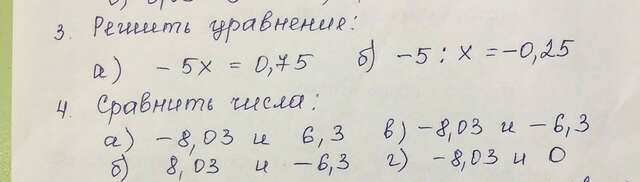 3. Решить уравнение:
а) - 5х = 0,75 б) -5 : х = -0,25
4. Сравнить числа:
а) -8,03 и 6,3 в) -8,03 и -6,3
б) 8,03 и -6,3 г) -8,03 и 0